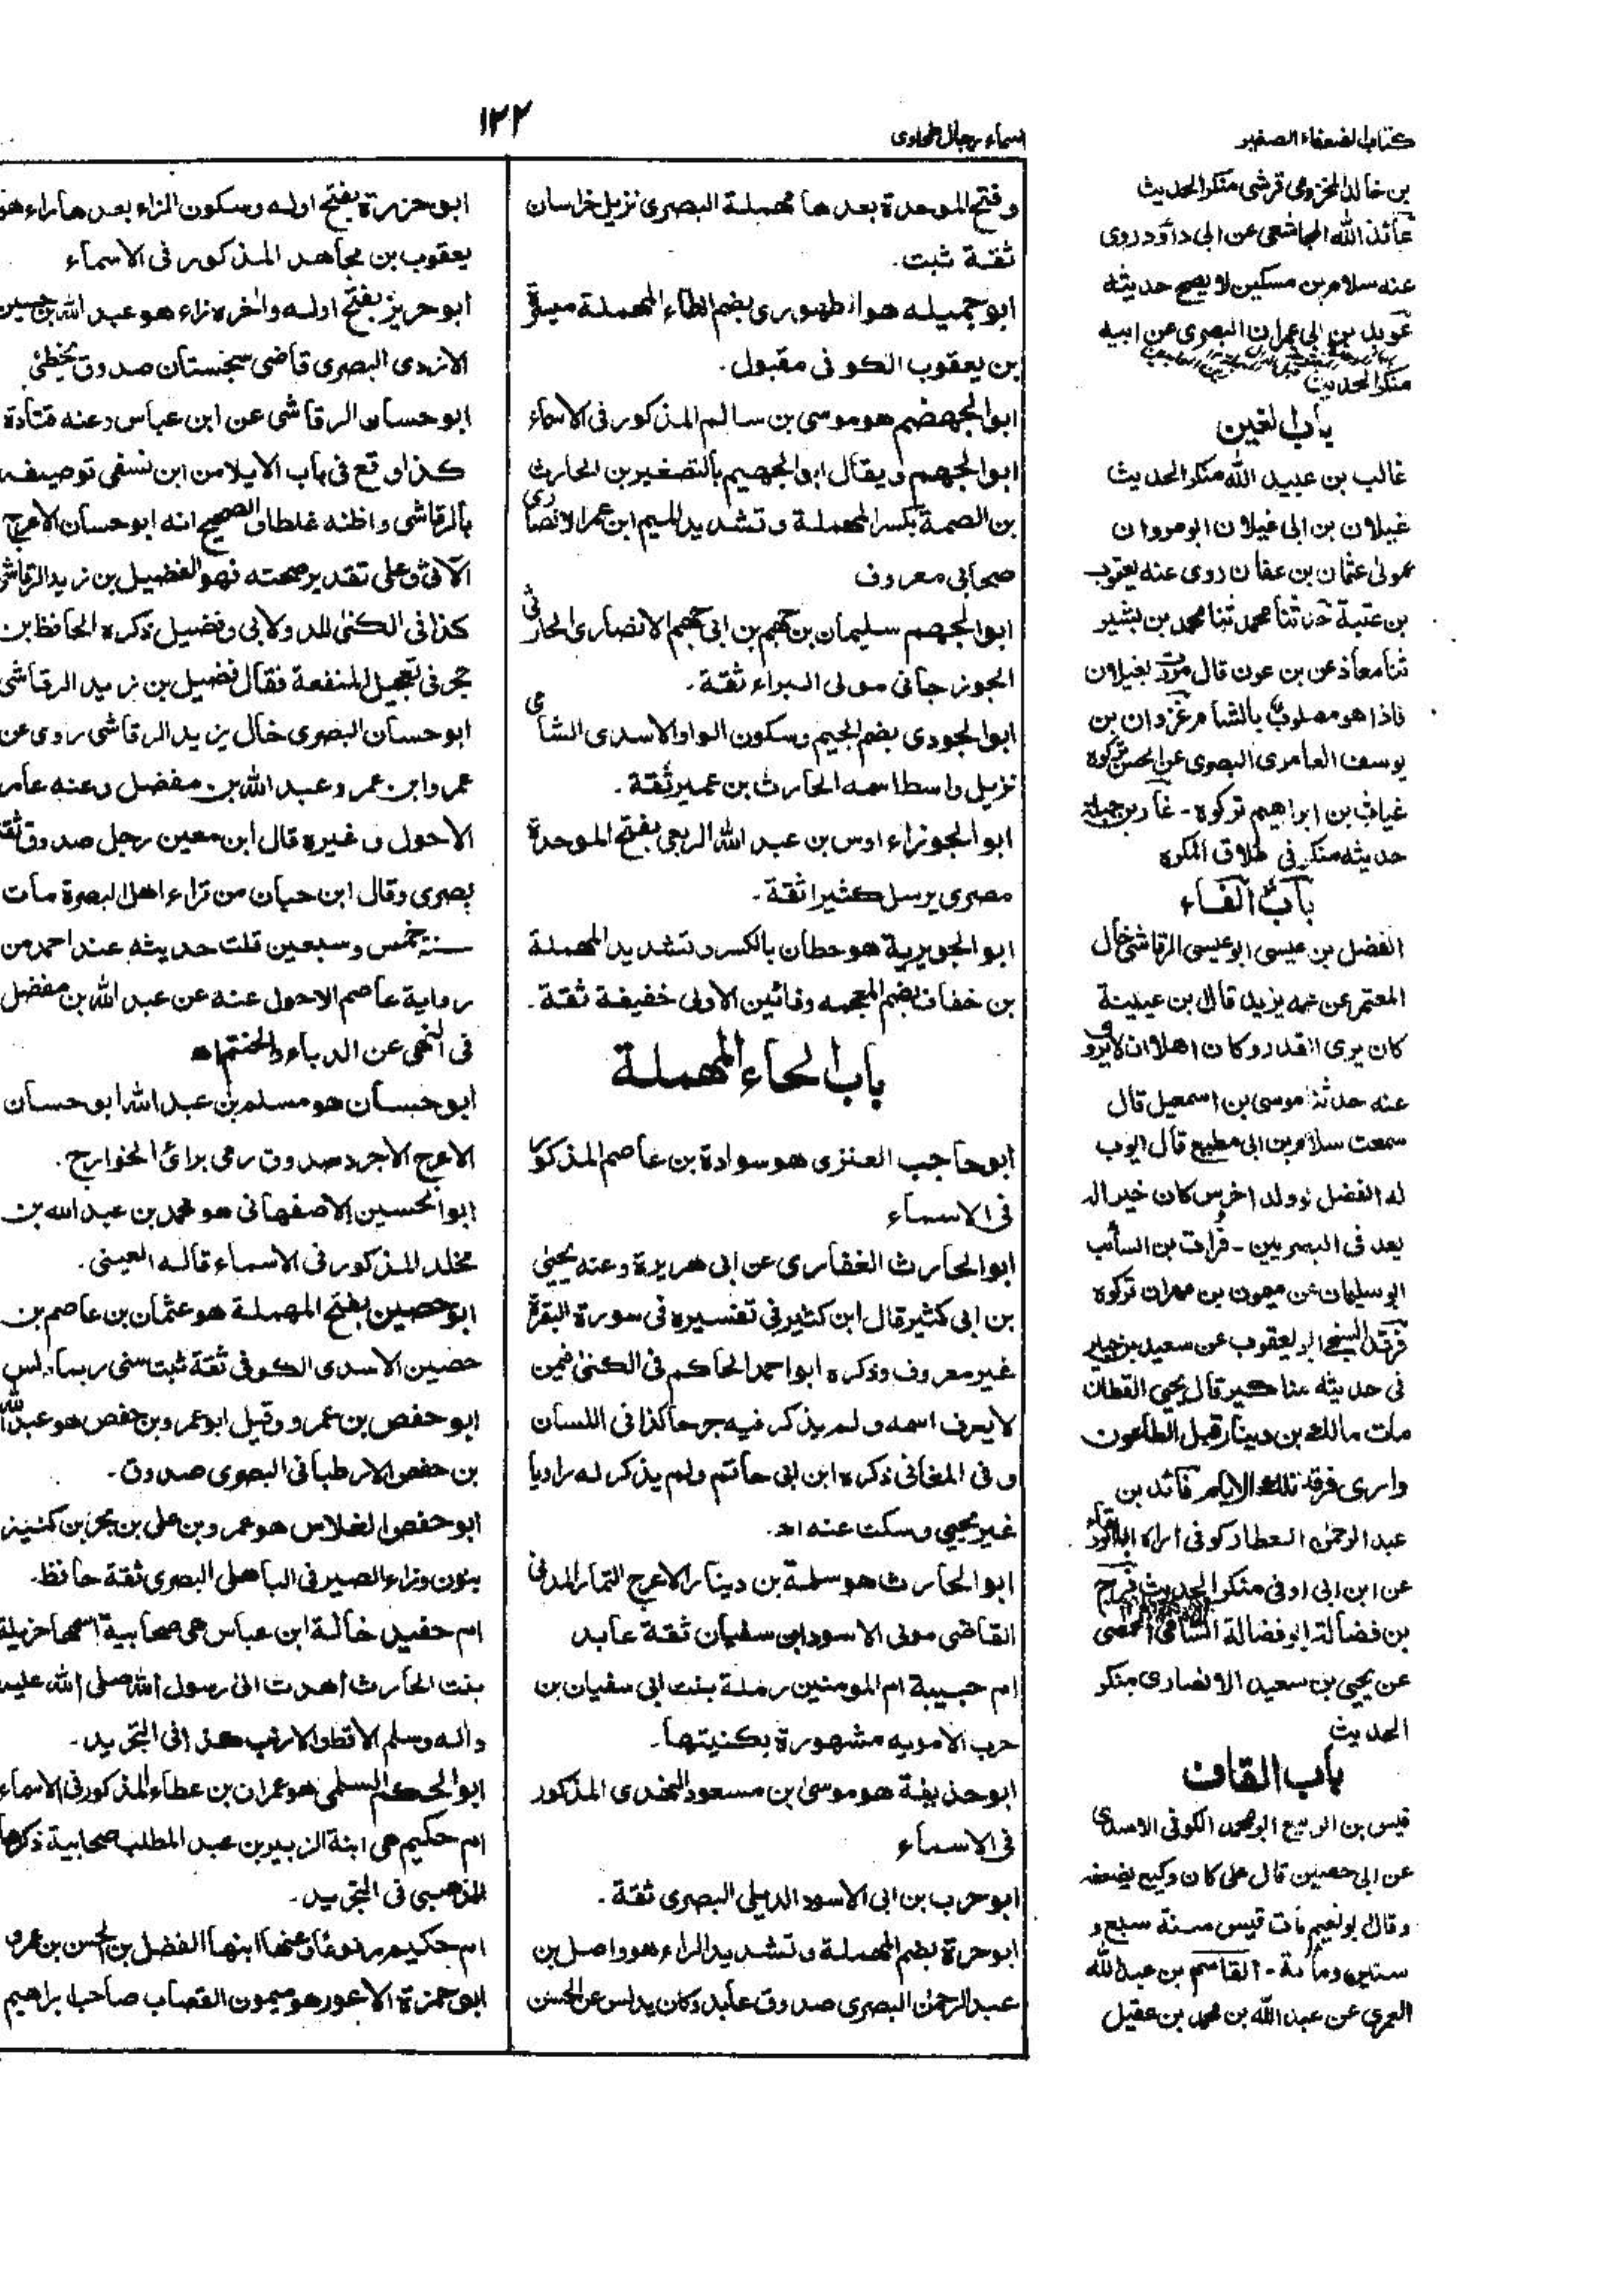 ١٢٢
اسماء رجال طحاوى
كتاب الضعفاء الصغير
بن خالد المخزومى قرشى منكر الحديث
عائذ الله المجاشعى عن ابى داؤد روى
عنه سلام بن مسكين لا يصح حديثه
عويد بن ابى عمران البصرى عن ابيه
منكر الحديث
باب الغين
غالب بن عبيد الله منكر الحديث
غيلان بن ابى غيلان ابو مروان
مولى عثمان بن عفان روى عنه يعقوب
بن عتبة حدثنا محمد ثنا محمد بن بشير
ثنا معاذ عن بن عون قال مررت بغيلان
فاذا هو مصلوب بالشام غزوان بن
يوسف العامرى البصرى عن الحسن تركوه
غياث بن ابراهيم تركوه - غاز بن جبلة
حديثه منكر فى طلاق المكره
باب الفاء
الفضل بن عيسى ابو عيسى الرقاشى خال
المعتمر عن عمه يزيد قال بن عيينة
كان يرى القدر وكان اهلا ان لا يروى
عنه حدثنا موسى بن اسمعيل قال
سمعت سلام بن ابى مطيع قال ايوب
له الفضل لو ولد اخرس كان خير اله
يعد فى البصريين - فرات بن السائب
ابو سليمان عن ميمون بن مهران تركوه
فرقد السبخى ابو يعقوب عن سعيد بن جبير
فى حديثه مناكير قال يحيى القطان
مات مالك بن دينار قبل الطاعون
وارى فرقد تلك الايام فائد بن
عبد الرحمن العطار كوفى اراه ابا الورقاء
عن ابن ابى اوفى منكر الحديث فرج
بن فضالة ابو فضالة الشامى الحمصى
عن يحيى بن سعيد الانصارى منكر
الحديث
باب القاف
قيس بن الربيع ابو محمد الكوفى الاسدى
عن ابى حصين قال على كان وكيع يضعفه
وقال ابو نعيم مات قيس سنة سبع و
ستين ومأة - القاسم بن عبد الله
العمرى عن عبد الله بن محمد بن عقيل
وفتح الموحدة بعدها مهملة البصرى نزيل خراسان
ثقة ثبت.
ابو جميله هو الطهورى بضم الطاء المهملة ميسرة
بن يعقوب الكوفى مقبول.
ابو الجهضم هو موسى بن سالم المذكور فى الاسماء
ابو الجهم ويقال ابو الجهيم بالتصغير بن الحارث
بن الصمة بكسر المهملة وتشديد الميم ابن عمر الانصارى
صحابى معروف
ابو الجهم سليمان بن جهم بن ابى جهم الانصارى الحارثى
الجوزجانى مولى البراء ثقة.
ابو الجودى بضم الجيم وسكون الواو الاسدى الشامى
نزيل واسط اسمه الحارث بن عمير ثقة.
ابو الجوزاء اوس بن عبد الله الربعى بفتح الموحدة
مصرى يرسل كثيرا ثقة.
ابو الجويرية هو حطان بالكسر وتشديد المهملة
بن خفاف بضم المعجمه وفائين الاولى خفيفة ثقة.
باب الحاء المهملة
ابو حاجب العنزى هو سوادة بن عاصم المذكور
فى الاسماء
ابو الحارث الغفارى عن ابى هريرة وعنه يحيىٰ
بن ابى كثير قال ابن كثير فى تفسيره فى سورة البقرة
غير معروف وذكره ابو احمد الحاكم فى الكنىٰ فيمن
لا يعرف اسمه ولم يذكر فيه جرحا كذا فى اللسان
وفى المغانى ذكره ابن ابى حاتم ولم يذكر له راويا
غير يحيى وسكت عنه اه.
ابو الحارث هو سلمة بن دينار الاعرج التمار المدنى
القاضى مولى الاسود ابن سفيان ثقة عابد
ام حبيبة ام المومنين رملة بنت ابى سفيان بن
حرب الامويه مشهورة بكنيتها.
ابو حذيفة هو موسىٰ بن مسعود النهدى المذكور
فى الاسماء
ابو حرب بن ابى الاسود الديلى البصرى ثقة.
ابو حرة بضم المهملة وتشديد الراء هو واصل بن
عبد الرحمٰن البصرى صدوق عابد وكان يدلس عن الحسن
ابو حزرة بفتح اوله وسكون الزاء بعدها راء هو
يعقوب بن مجاهد المذكور فى الاسماء
ابو حريز بفتح اوله واٰخره زاء هو عبد الله بن حسين
الازدى البصرى قاضى سجستان صدوق يخطئ
ابو حسان الرقاشى عن ابن عباس وعنه قتادة
كذا وقع فى باب الايلا من ابن نسفى توصيفه
بالرقاشى واظنه غلطا والصحيح انه ابو حسان الاعرج
الآتى وعلى تقدير صحته فهو الفضيل بن زيد الرقاشى
كذا فى الكنىٰ للدولابى وفضيل ذكره الحافظ بن
حجر فى تعجيل المنفعة فقال فضيل بن زيد الرقاشى
ابو حسان البصرى خال يزيد الرقاشى روى عن
عمر وابن عمر وعبد الله بن مفضل وعنه عاصم
الاحول وغيره قال ابن معين رجل صدوق ثقة
بصرى وقال ابن حبان من قراء اهل البصرة مات
سنة خمس وسبعين قلت حديثه عند احمد من
رواية عاصم الاحول عنه عن عبد الله بن مفضل
فى النهى عن الدباء والحنتم اه
ابو حسان هو مسلم بن عبد الله ابو حسان
الاعرج الاجرد صدوق رمى برائ الخوارج.
ابو الحسين الاصفهانى هو محمد بن عبد الله بن
مخلد المذكور فى الاسماء قاله العينى.
ابو حصين بفتح المهملة هو عثمان بن عاصم بن
حصين الاسدى الكوفى ثقة ثبت سنى ربما دلس
ابو حفص بن عمرو وقيل ابو عمرو بن حفص هو عبد الله
بن حفص الارطبانى البصرى صدوق.
ابو حفص الفلاس هو عمرو بن على بن بحر بن كنيز
بنون وزاء الصيرفى الباهلى البصرى ثقة حافظ.
ام حفيد خالة ابن عباس هى صحابية اسمها هزيلة
بنت الحارث اهدت الى رسول الله صلى الله عليه
واله وسلم الاقط والارنب هذا فى التجريد.
ابو الحكم السلمى هو عمران بن عطاء المذكور فى الاسماء
ام حكيم هى ابنة الزبير بن عبد المطلب صحابية ذكرها
الذهبى فى التجريد.
ام حكيم مرفوعا وعنها ابنها الفضل بن الحسن بن عمرو
ابو حمزة الاعور هو ميمون القصاب صاحب ابراهيم